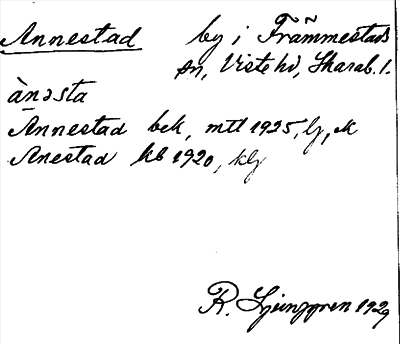 Annestad by i Främmestads
sn, Viste hd, Skarab. l.
ànɔsta
Annestad bek, mtl 1925, lj, k
Anestad kb 1920, klj
R. Ljunggren 1929